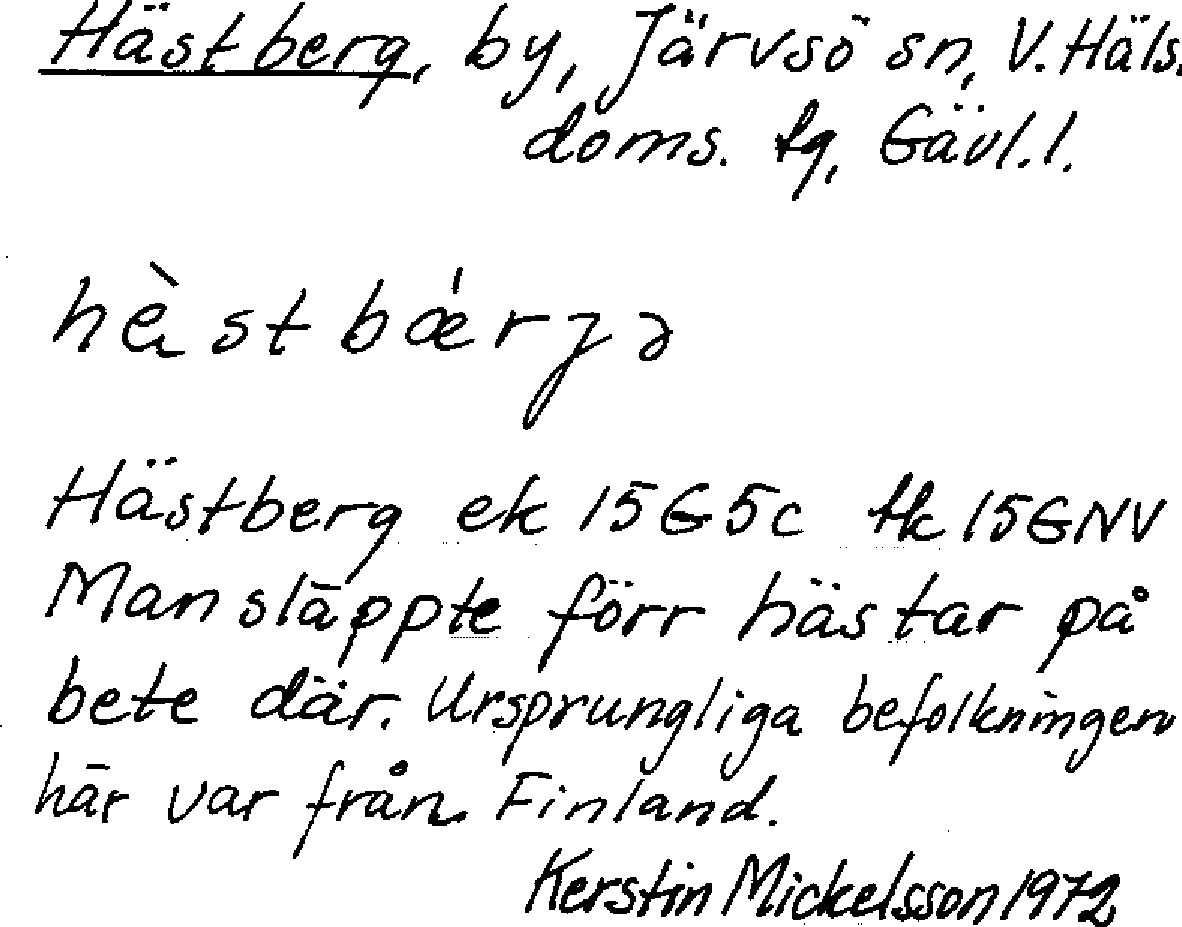 Hästberg, by, Järvsö sn, V. Häls.
doms. tg, Gävl. l.
hèstbǽrȷə
Hästberg ek 15G5c tk 15GNV
Man släppte förr hästar på
bete där. Ursprungliga befolkningen
här var från Finland.
Kerstin Mickelsson 1972